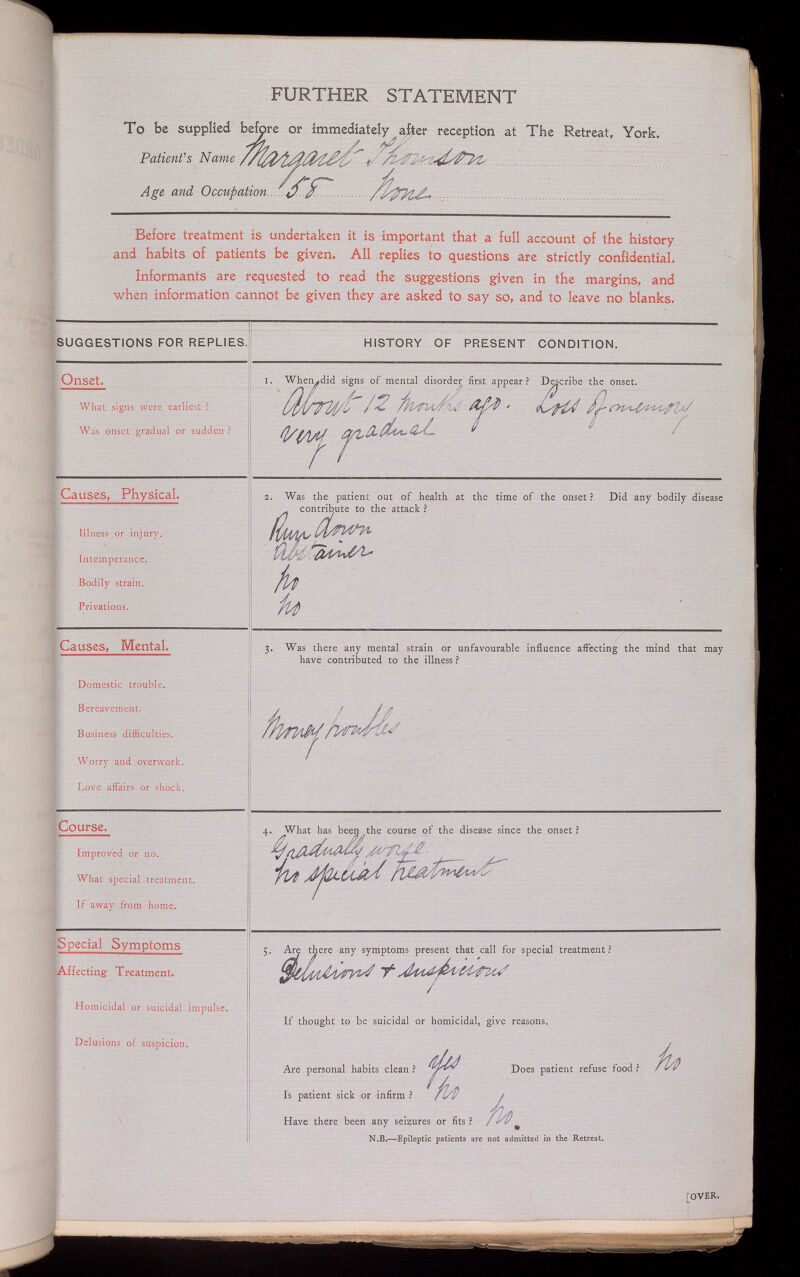 FURTHER STATEMENT
To be supplied before or immediately after reception at The Retreat, York.
Patient's Name Margaret Thomson
Age and Occupation 58 None
Before treatment is undertaken it is important that a full account of the history
and habits of patients be given. All replies to questions are strictly confidential.
Informants are requested to read the suggestions given in the margins, and
when information cannot be given they are asked to say so, and to leave no blanks.
SUGGESTIONS FOR REPLIES.
HISTORY OF PRESENT CONDITION.
Onset.
What signs were earliest ?
Was onset gradual or sudden ?
1. When did signs of mental disorder first appear ? Describe the onset.
About 12 months ago. Loss of memory
Very gradual
Causes, Physical.
Illness or injury.
Intemperance.
Bodily strain.
Privations.
2. Was the patient out of health at the time of the onset ? Did any bodily disease
contribute to the attack ?
Run down
Abstainer
No
No
Causes, Mental.
Domestic trouble.
Bereavement.
Business difficulties.
Worry and overwork.
Love affairs or shock.
3. Was there any mental strain or unfavourable influence affecting the mind that may
have contributed to the illness ?
Money troubles
Course.
Improved or no.
What special treatment.
If away from home.
4. What has been the course of the disease since the onset ?
Gradually worse
No special treatment
Special Symptoms
Affecting Treatment.
Homicidal or suicidal impulse.
Delusions of suspicion.
5. Are there any symptoms present that call for special treatment ?
Delusions + suspicious
If thought to be suicidal or homicidal, give reasons.
Are personal habits clean ? Yes Does patient refuse food ? No
Is patient sick or infirm ? No
Have there been any seizures or fits ? No.
N.B.—Epileptic patients are not admitted in the Retreat.
[OVER.